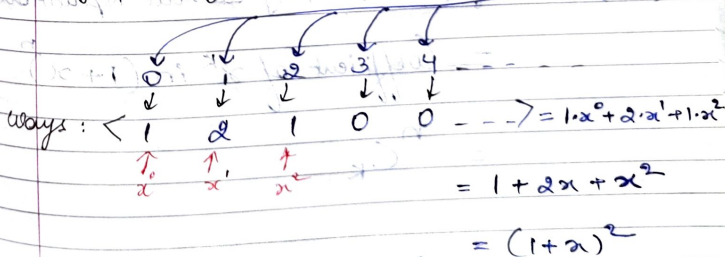 0 1 2 3 4 - - - - -
ways : < 1 2 1 0 0 - - - > = 1·x⁰ + 2·x¹ + 1·x²
x⁰ x¹ x²
= 1 + 2x + x²
= (1+x)²